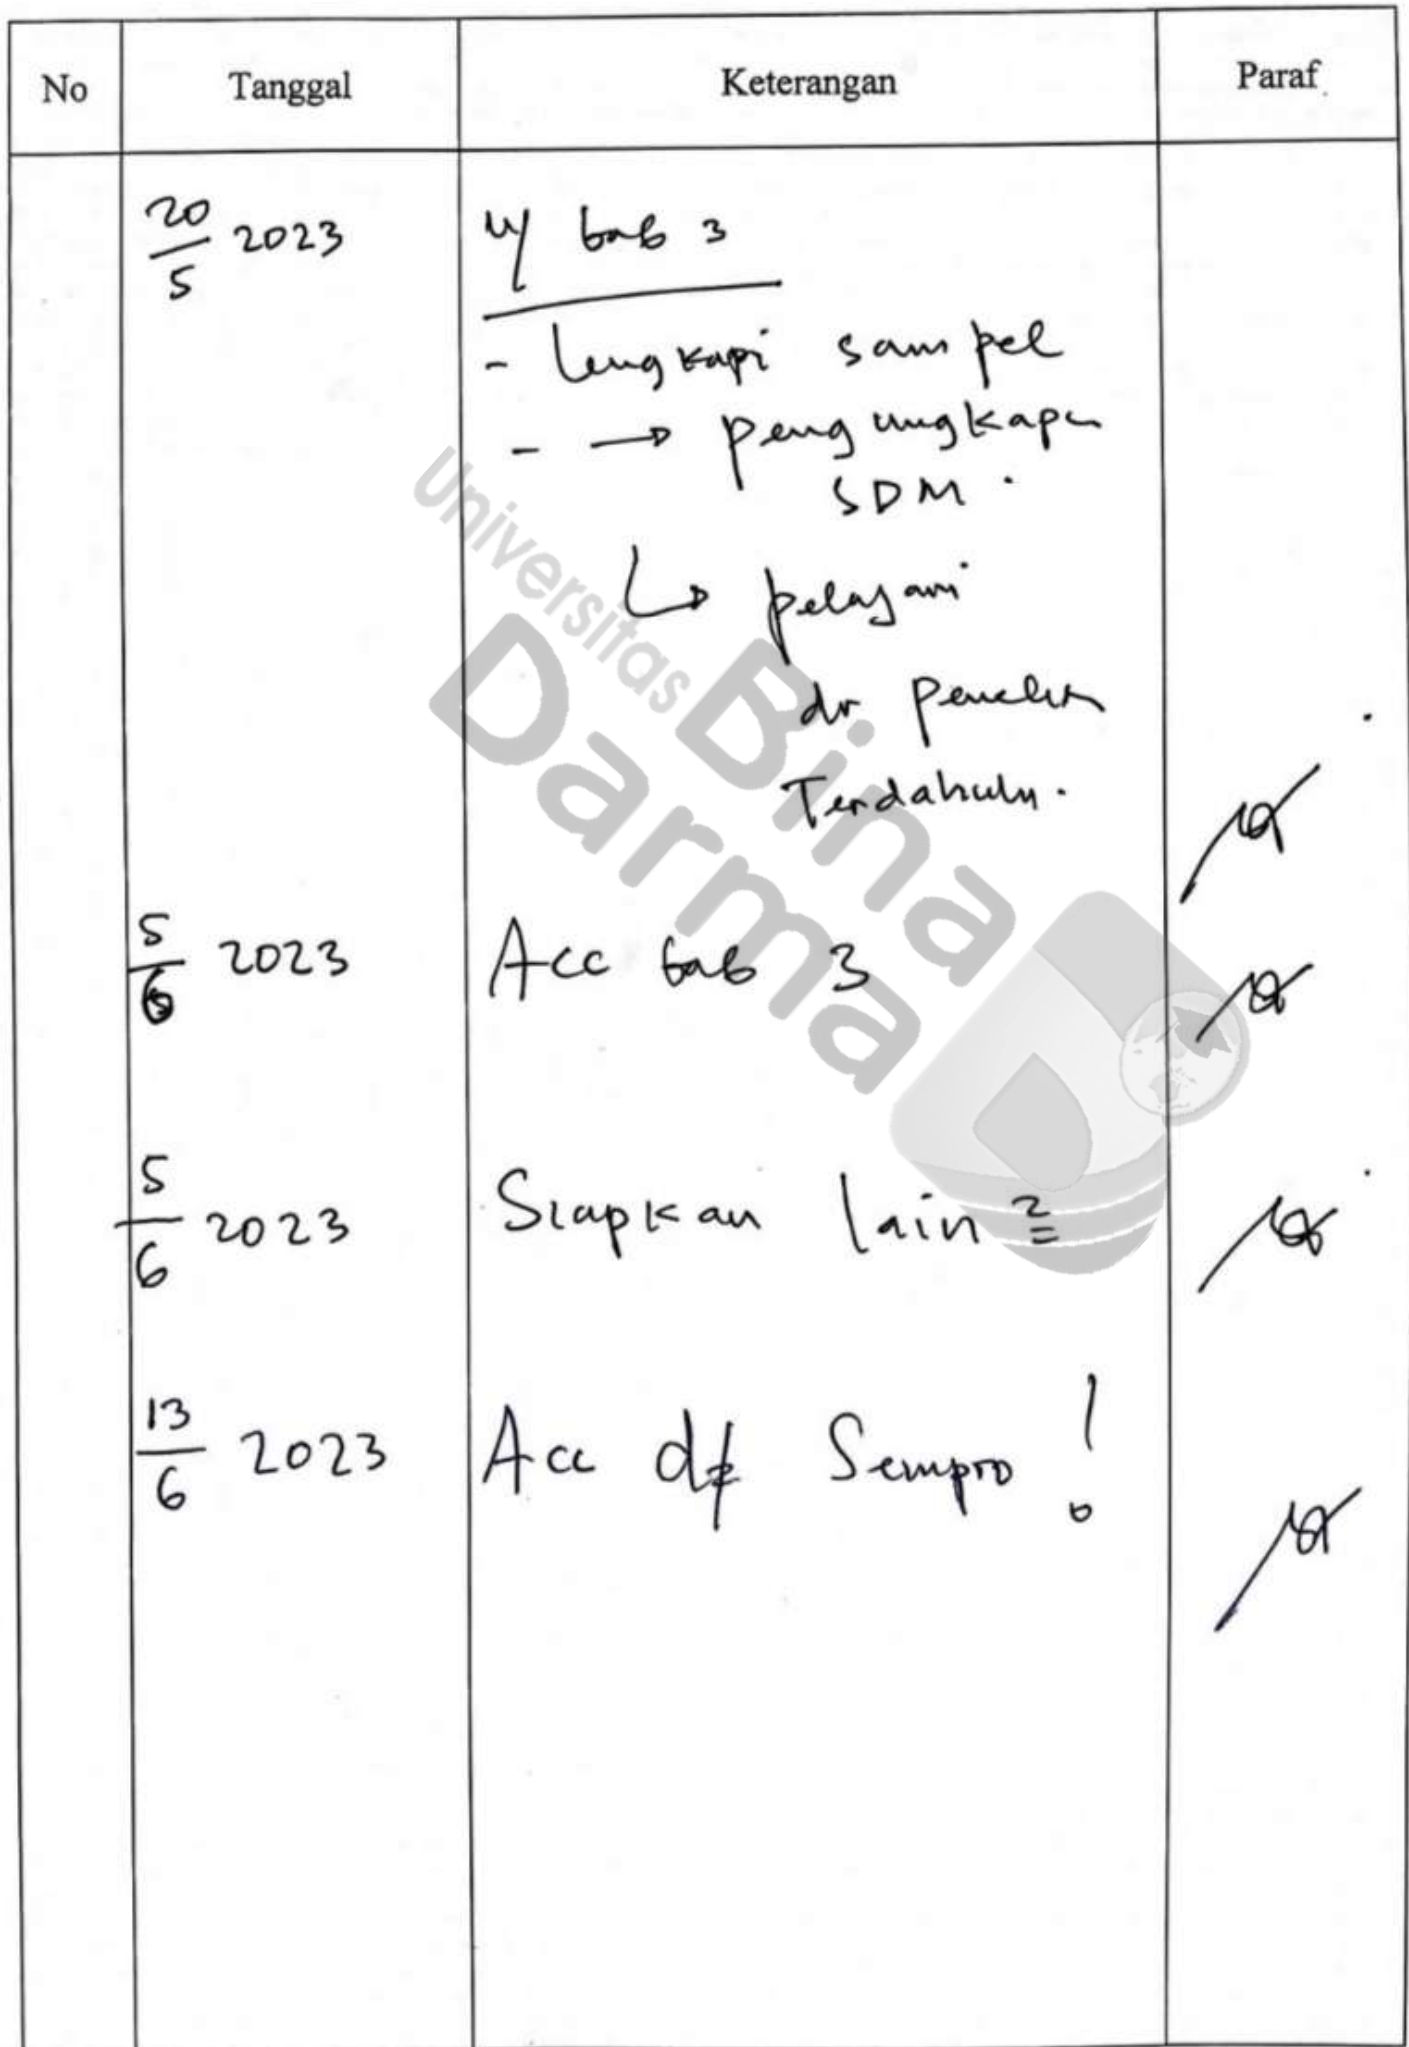 No Tanggal Keterangan Paraf
20/5 2023 u/ bab 3
- lengkapi sampel
- → pengungkapan
SDM.
↳ pelajari
dr
Terdahulu.
5/6 2023 Acc bab 3
5/6 2023 Siapkan lain2
13/6 2023 Acc Sempro!
Universitas
Bina
Darma